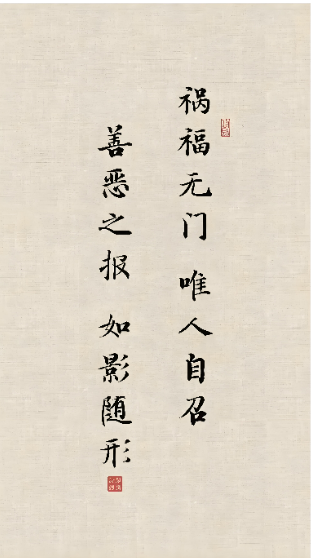 祸福无门 唯人自召
善恶之报 如影随形